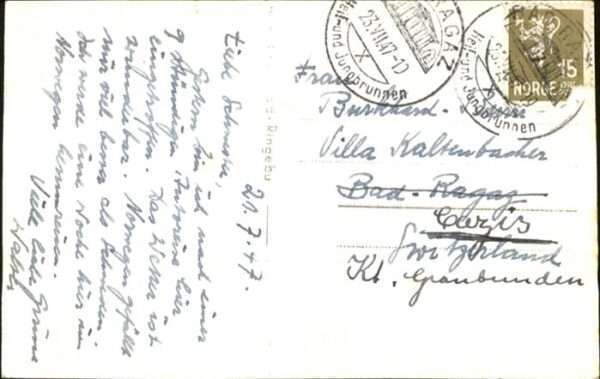 21.7.47.
Liebe Schwester,
Gestern bin ich nach einer
9 stündigen Autoreise hier
eingetroffen. Das Wetter ist
wunderbar. Norwegen gefällt
mir viel besser als Schweden.
Ich werde eine Woche hier in
Norwegen
Viele liebe Grüsse
Ringebu
RAGAZ
23.VII.47-10
X
Heil- und Jungbrunnen
BAD RAGAZ
Heil- und Jungbrunnen
15
NORGE
Frau
Burkhard-
Villa Kaltenbacher
Bad-Ragaz
Cazis
Switzerland
Kt. Graubünden